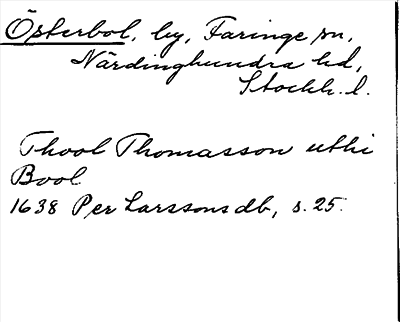 Österbol, by, Faringe sn,
Närdinghundra hd,
Stockh. l.
Thool Thomasson uthi
Bool
1638 Per Larssons db, s. 25.